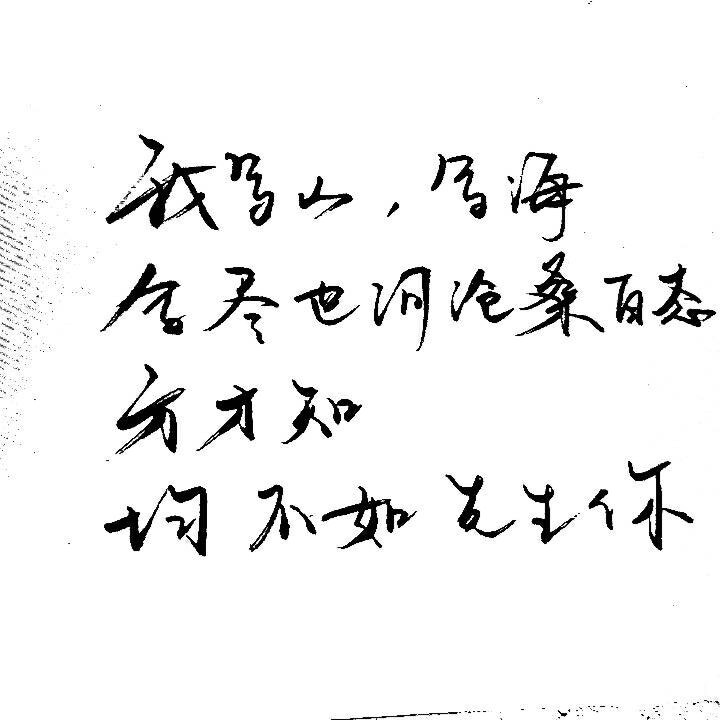 我写山，写海
写尽世间沧桑百态
方才知
均不如先生你